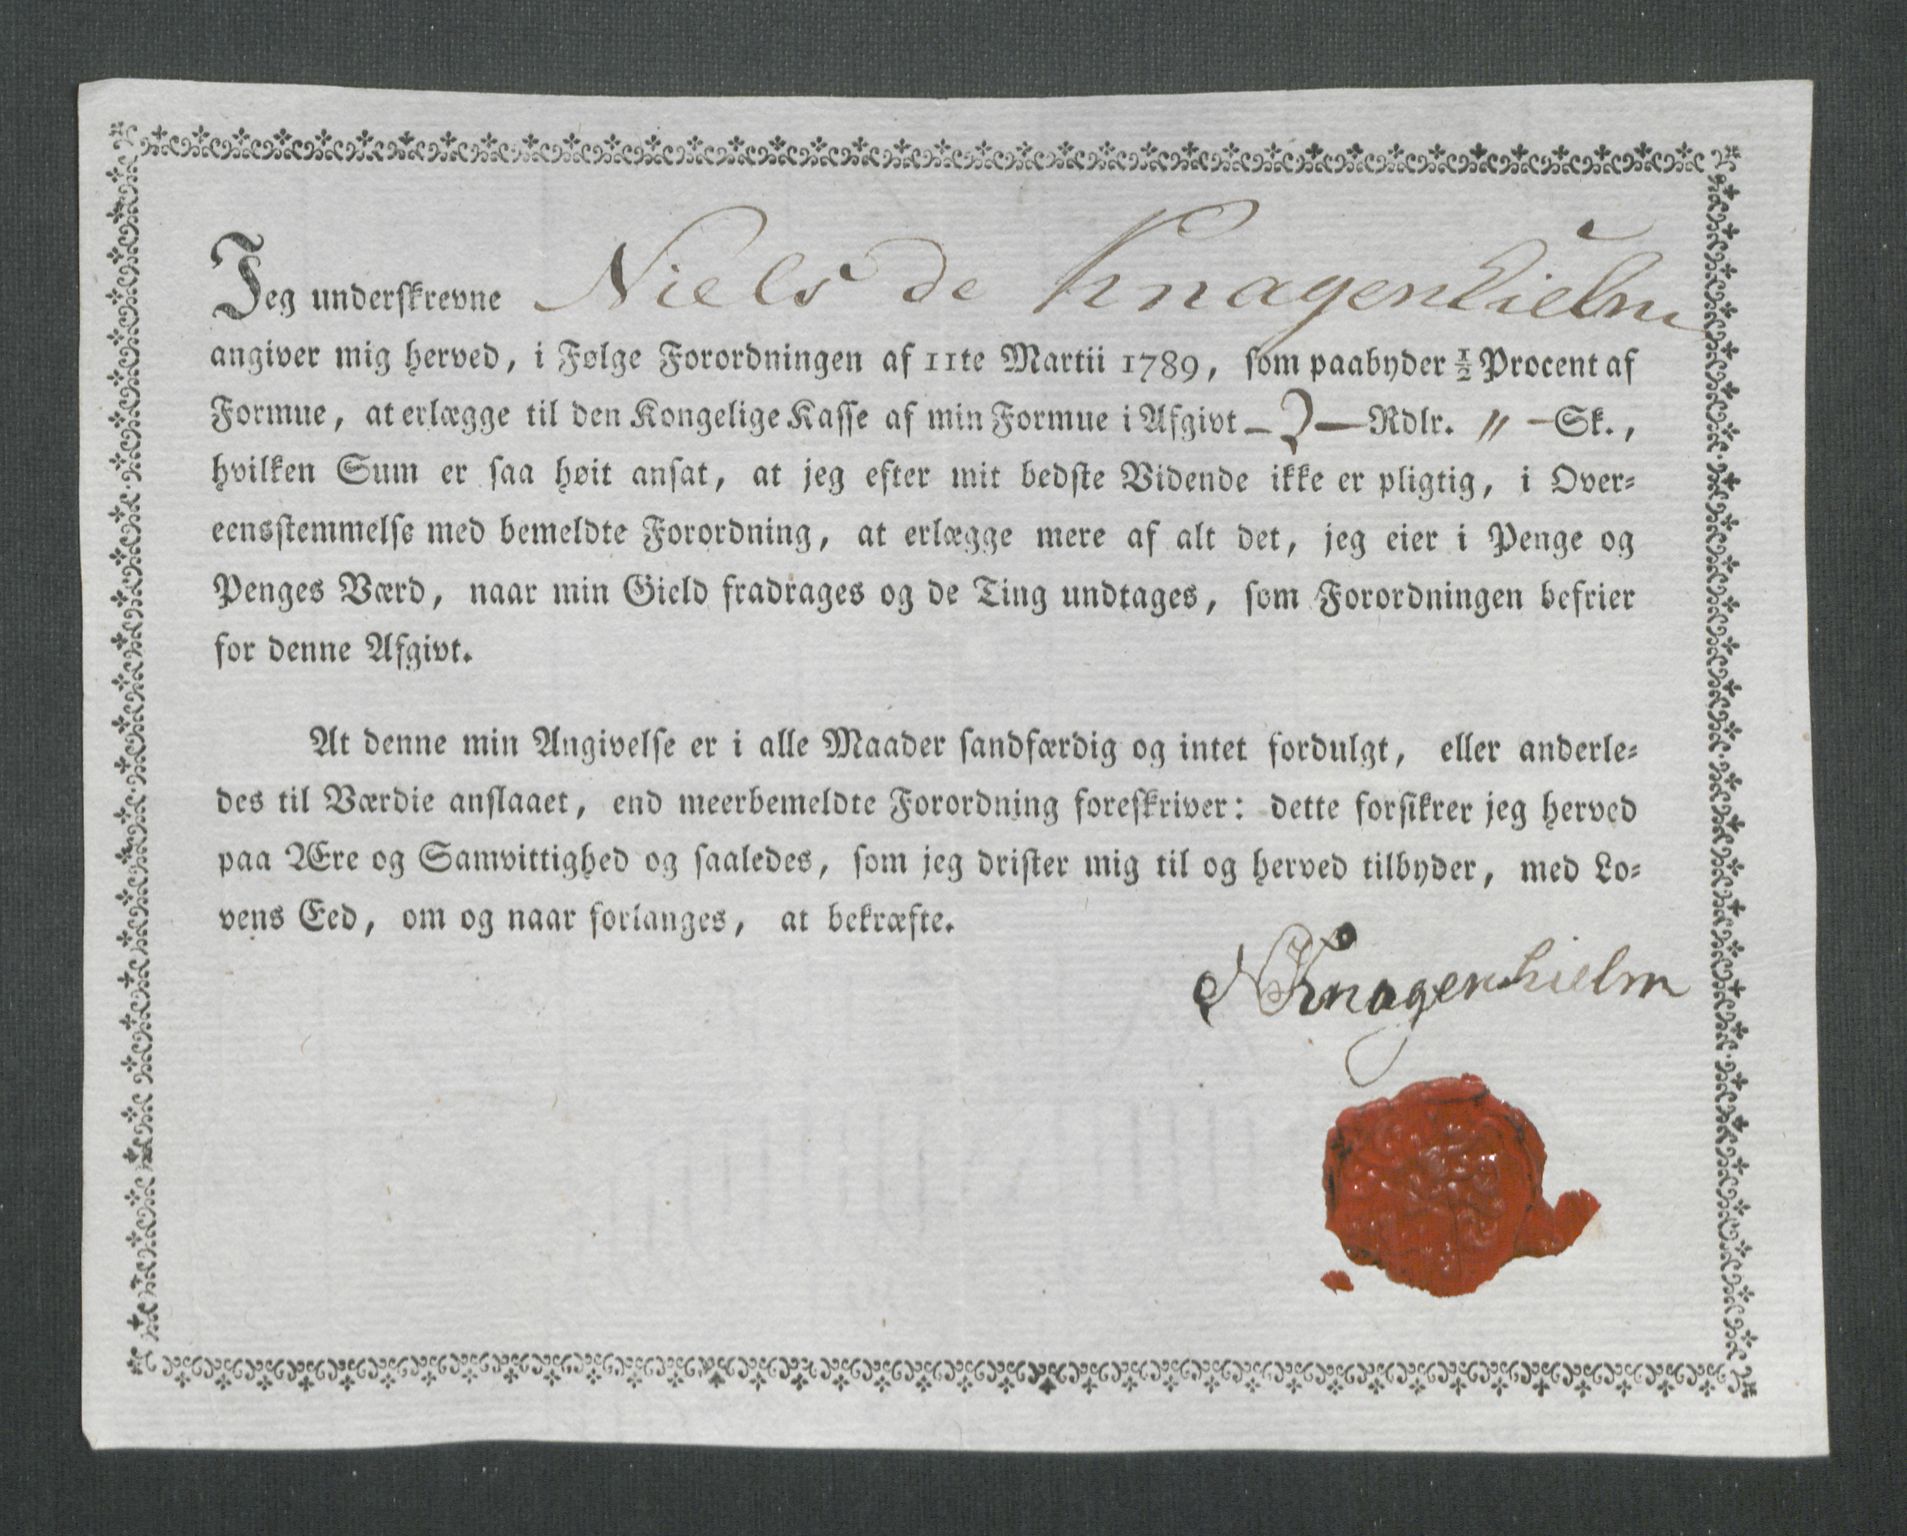 Jeg underskrevne Niels de Knagenhielm
angiver mig herved, i Følge Forordningen af 11te Martii 1789, som paabyder ½ Procent af
Formue, at erlægge til den Kongelige Kasse af min Formue i Afgivt — 2 — Rdlr. " — Sk.,
hvilken Sum er saa høit ansat, at jeg efter mit bedste Vidende ikke er pligtig, i Over-
eensstemmelse med bemeldte Forordning, at erlægge mere af alt det, jeg eier i Penge og
Penges Værd, naar min Gield fradrages og de Ting undtages, som Forordningen befrier
for denne Afgivt.
At denne min Angivelse er i alle Maader sandfærdig og intet fordulgt, eller anderle-
des til Værdie anslaaet, end meerbemeldte Forordning foreskriver: dette forsikrer jeg herved
paa Ære og Samvittighed og saaledes, som jeg drister mig til og herved tilbyder, med Lo-
vens Eed, om og naar forlanges, at bekræfte.
N Knagenhielm